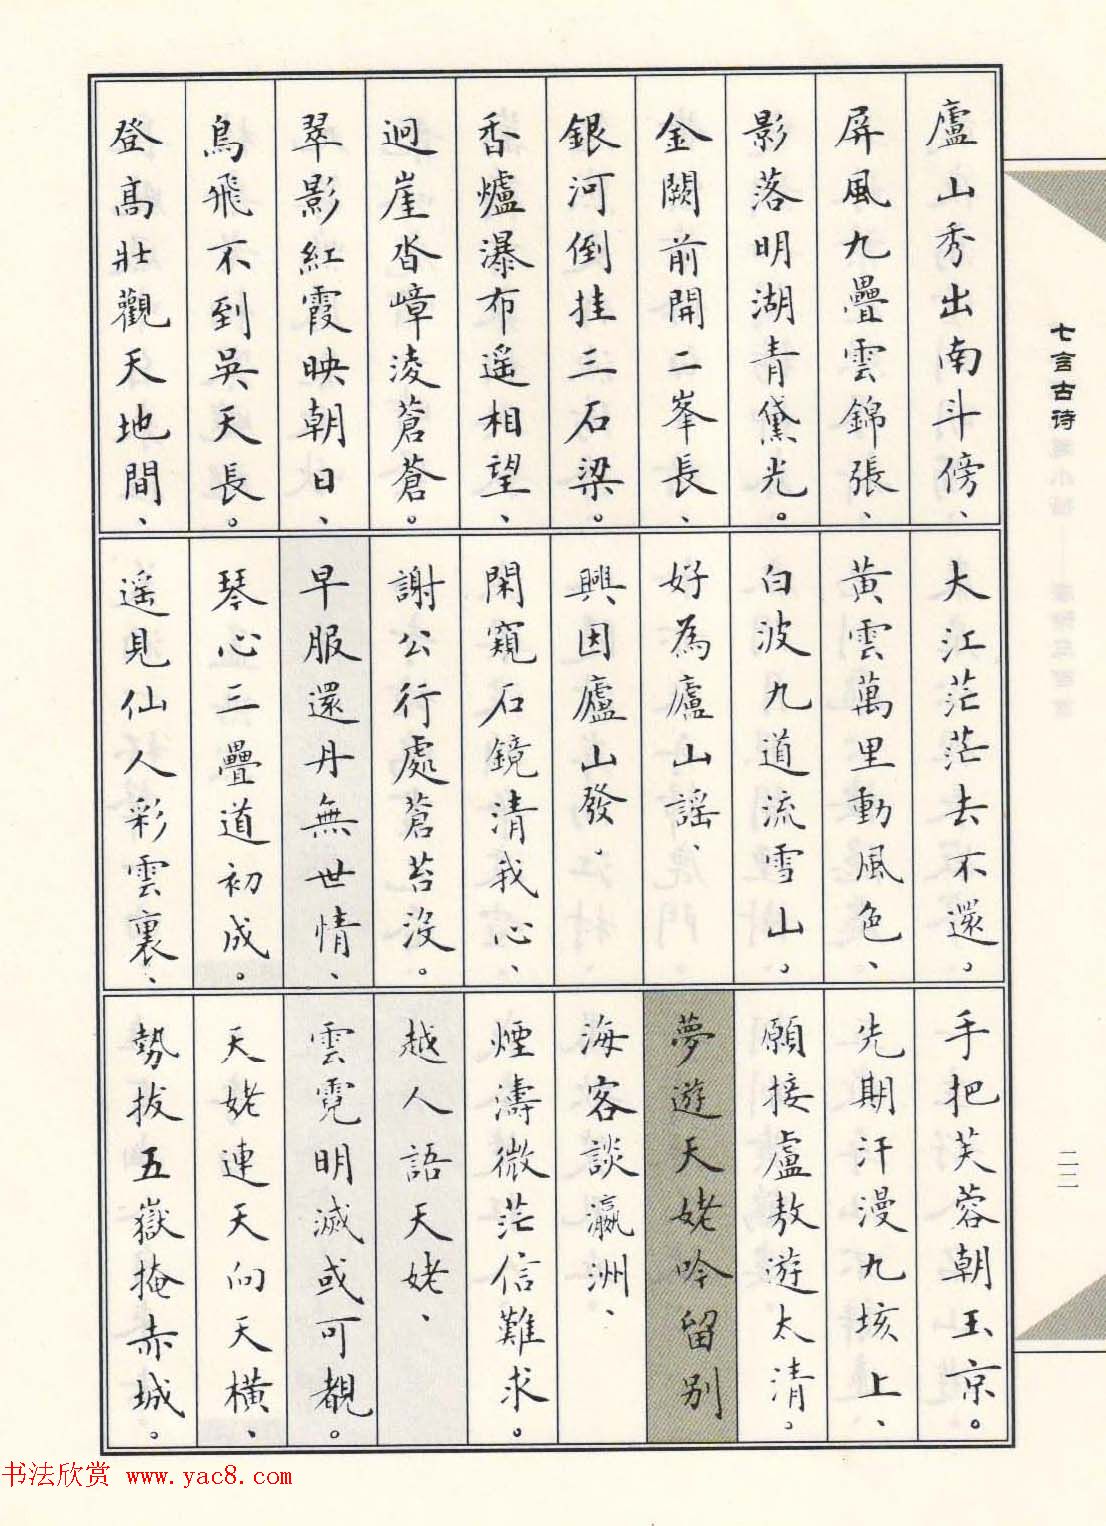 廬山秀出南斗傍、
屏風九疊雲錦張、
影落明湖青黛光。
金闕前開二峯長、
銀河倒挂三石梁。
香爐瀑布遥相望、
迴崖沓嶂淩蒼蒼。
翠影紅霞映朝日、
鳥飛不到吳天長。
登高壯觀天地間、
大江茫茫去不還。
黃雲萬里動風色、
白波九道流雪山。
好為廬山謠、
興因廬山發。
閑窺石鏡清我心、
謝公行處蒼苔沒。
早服還丹無世情、
琴心三疊道初成。
遥見仙人彩雲裏、
手把芙蓉朝玉京。
先期汗漫九垓上、
願接盧敖遊太清。
夢遊天姥吟留別
海客談瀛洲、
煙濤微茫信難求。
越人語天姥、
雲霓明滅或可覩。
天姥連天向天橫、
勢拔五嶽掩赤城。
七言古诗
二二
书法欣赏 www.yac8.com